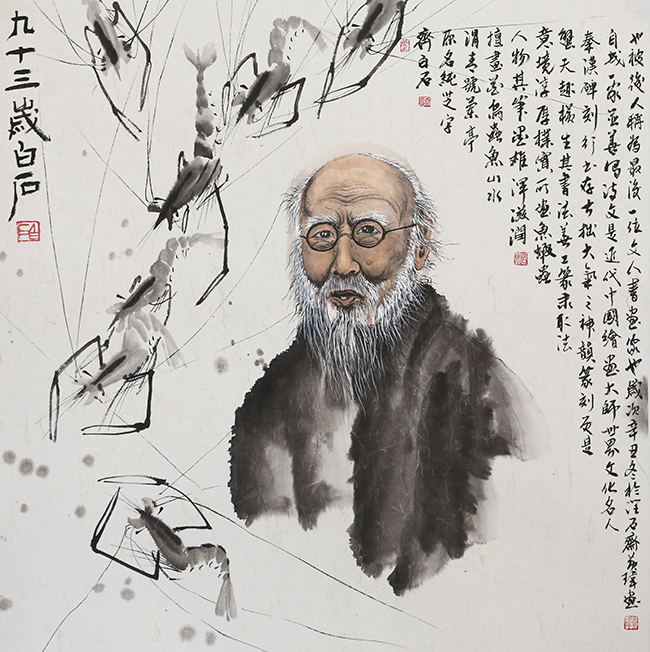 九十三歲白石
齊白石
原名純芝字
渭青號蘭亭
擅畫花鳥蟲魚山水
人物其筆墨雄渾滋潤
意境淳厚樸實所畫魚蝦蟲
蟹天趣橫生其書法善工篆隸取法
秦漢碑刻行書存古拙大氣之神韻篆刻更是
自成一家並善寫詩文是近代中國繪畫大師世界文化名人
也被後人稱為最後一位文人書畫家也歲次辛丑冬於石齋畫